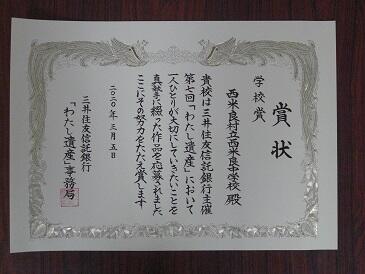 賞状
学校賞
西米良村立西米良中学校 殿
貴校は三井住友信託銀行主催
第七回「わたし遺産」において
一人ひとりが大切にしていきたいことを
真摯に綴った作品を応募されました
ここにその努力をたたえ賞します
二〇二〇年三月五日
三井住友信託銀行
「わたし遺産」事務局